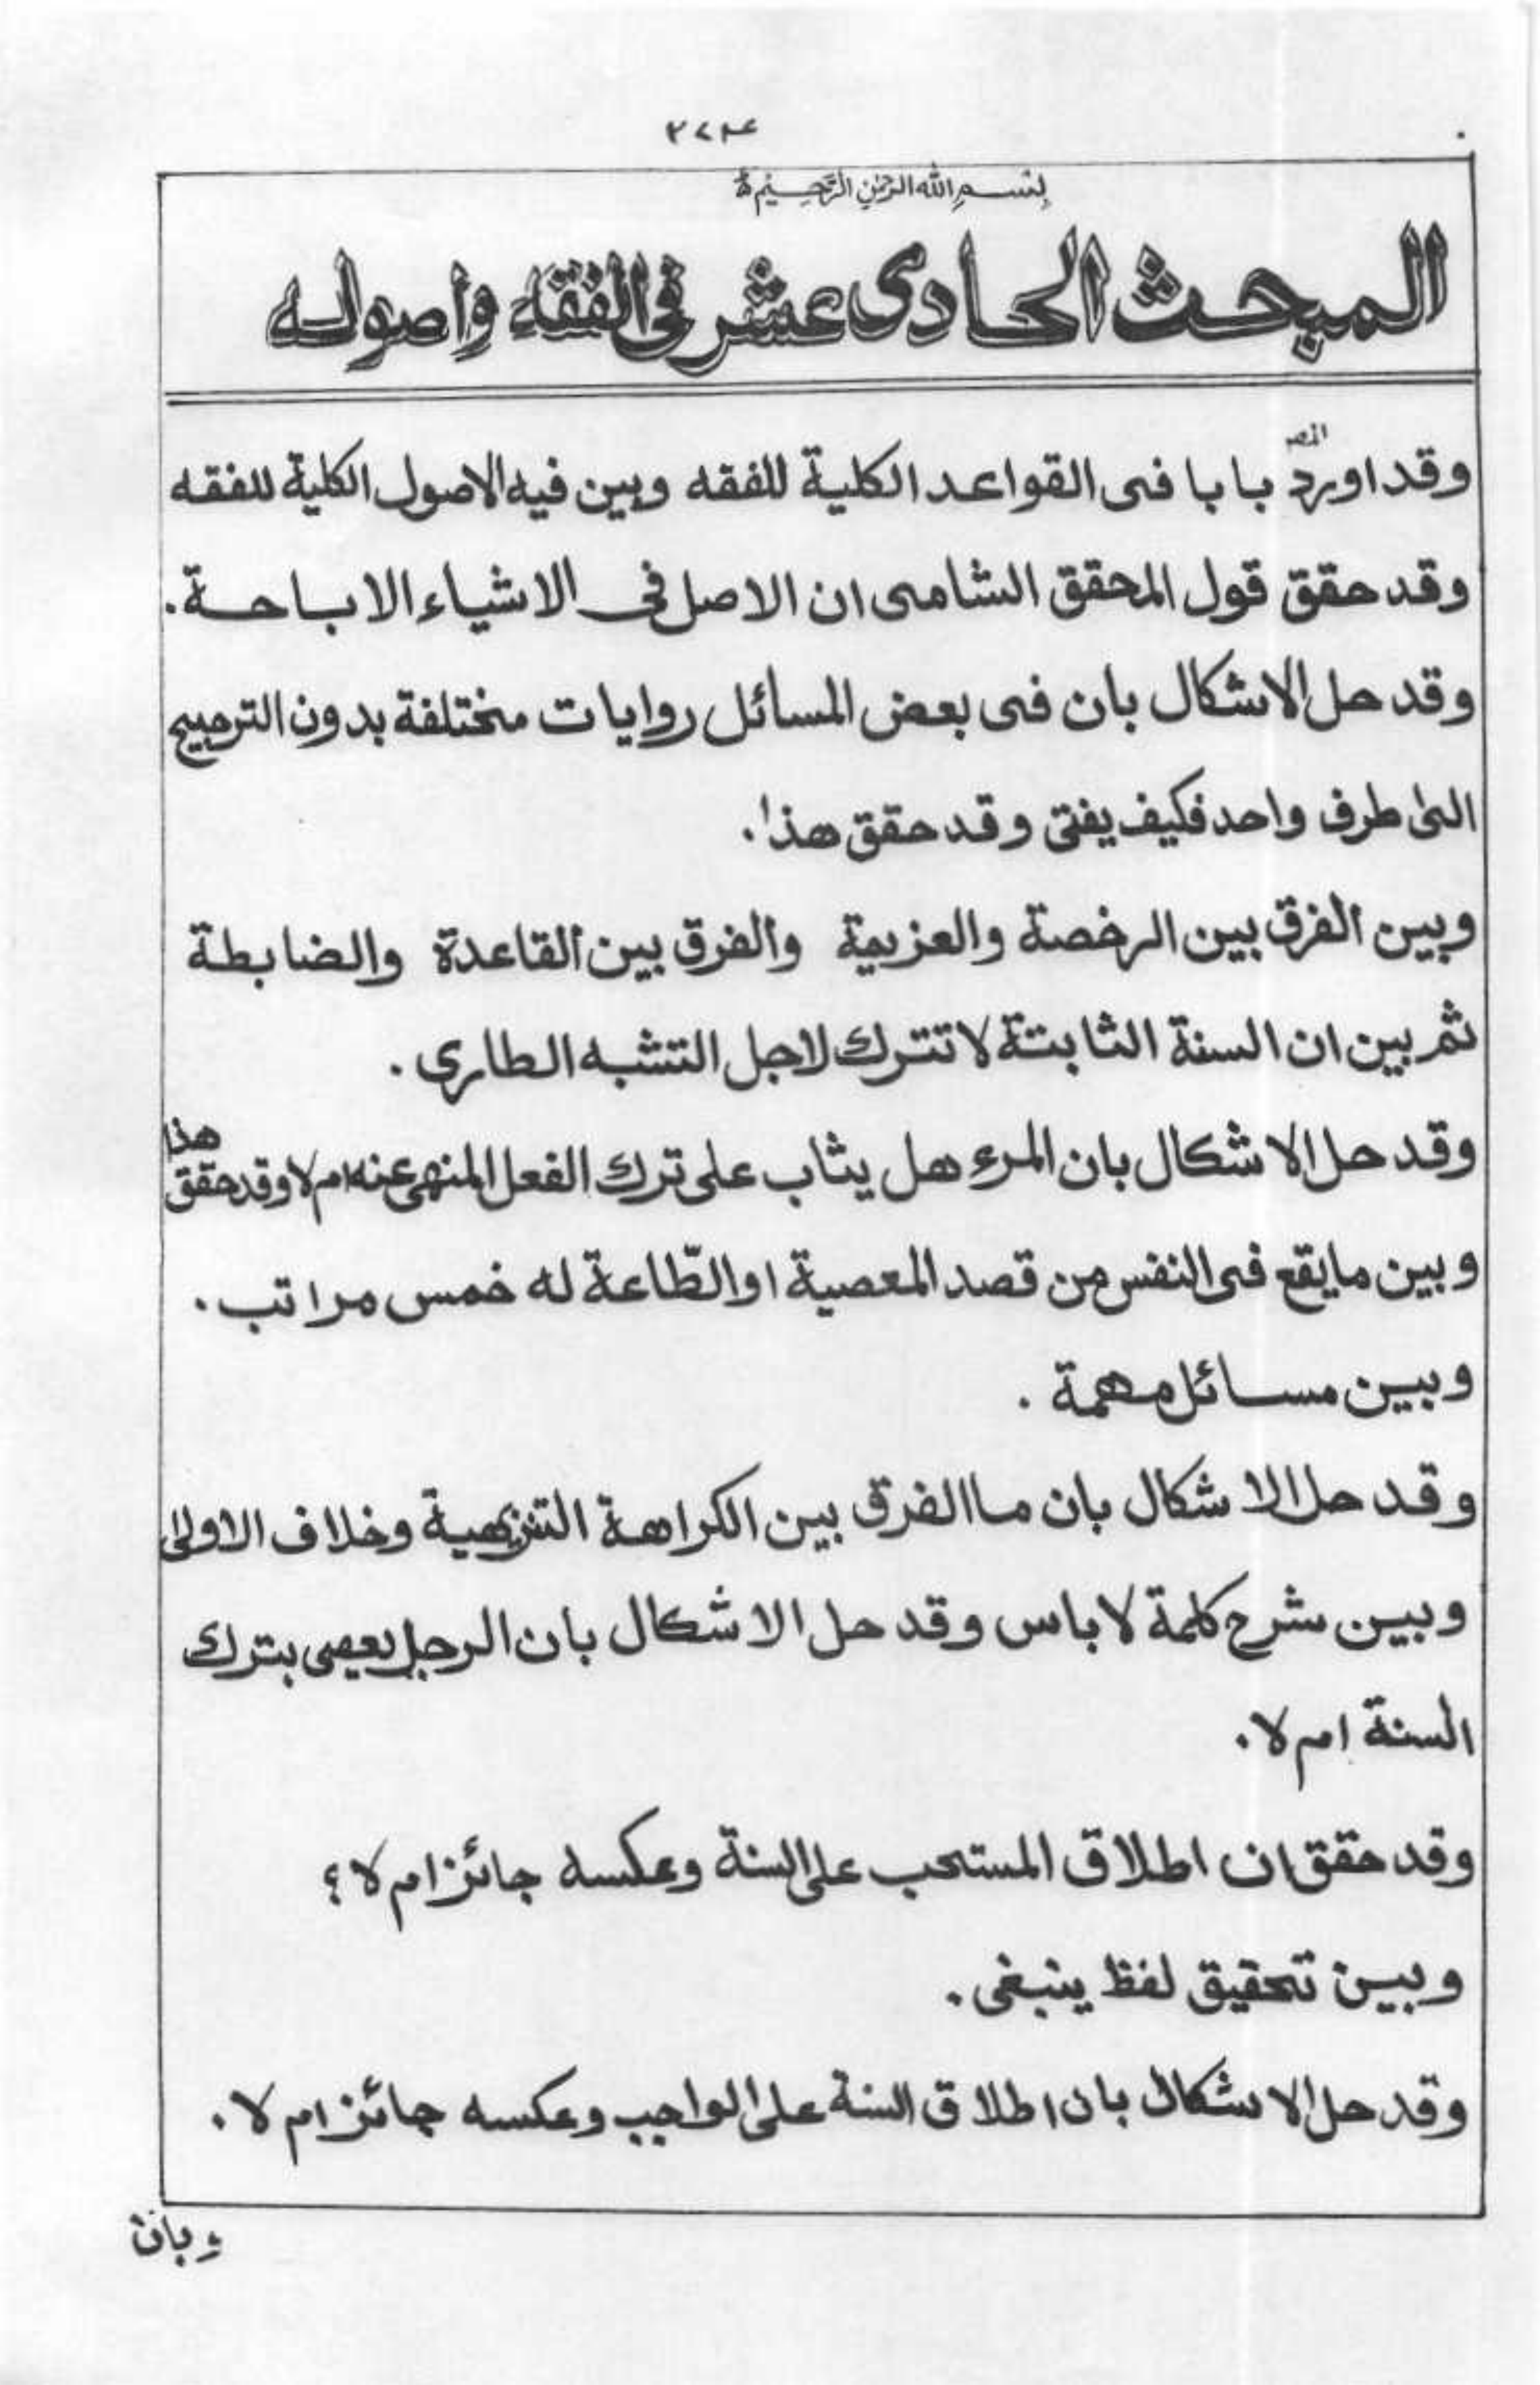 بِسْمِ اللهِ الرَّحْمٰنِ الرَّحِيْمِ
المبحث الحادى عشر فى الفقه واصوله
وقد اورد المصـ بابا فى القواعد الكلية للفقه وبين فيه الاصول الكلية للفقه
وقد حقق قول المحقق الشامى ان الاصل فى الاشياء الاباحة.
وقد حل الاشكال بان فى بعض المسائل روايات مختلفة بدون الترجيح
الى طرف واحد فكيف يفتى وقد حقق هذا.
وبين الفرق بين الرخصة والعزيمة والفرق بين القاعدة والضابطة
ثم بين ان السنة الثابتة لا تترك لاجل التشبه الطارى.
وقد حل الاشكال بان المرء هل يثاب على ترك الفعل المنهى عنه ام لا وقد حقق هذا
وبين مايقع فى النفس من قصد المعصية او الطّاعة له خمس مراتب.
وبين مسائل مهمة.
وقد حل الاشكال بان ما الفرق بين الكراهة التنزيهية وخلاف الاولى
وبين شرح كلمة لا باس وقد حل الاشكال بان الرجل يعصى بترك
السنة ام لا.
وقد حقق ان اطلاق المستحب على السنة وعكسه جائز ام لا؟
وبين تحقيق لفظ ينبغى.
وقد حل الاشكال بان اطلاق السنة على الواجب وعكسه جائز ام لا.
وبان